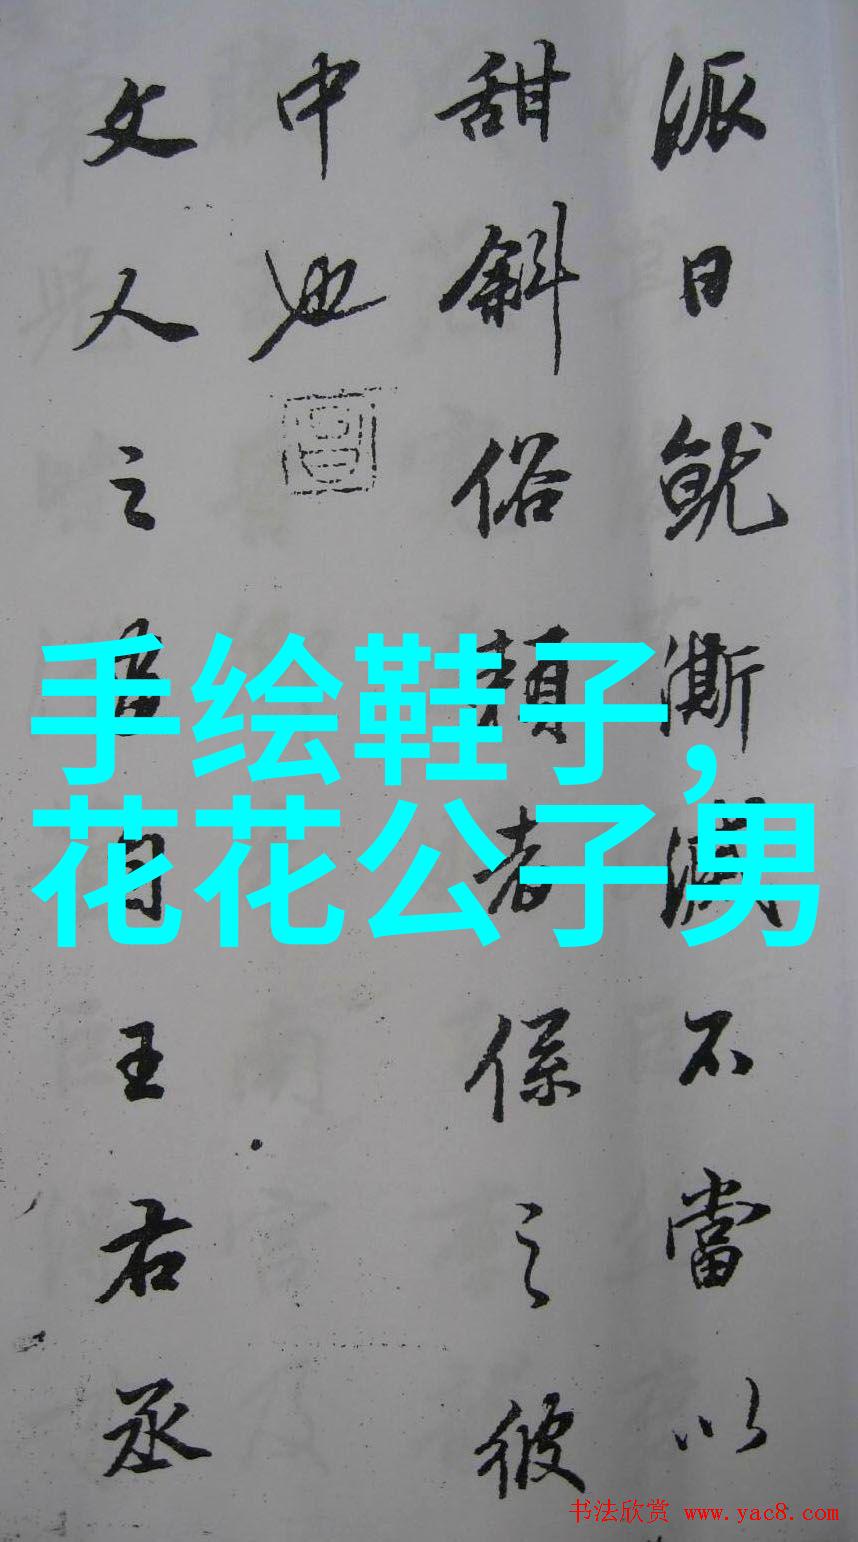 派日就澌滅不當以
甜斜俗賴者係之彼
中也
文人之畫自王右丞
手绘鞋子,
花花公子男
书法欣赏 www.yac8.com